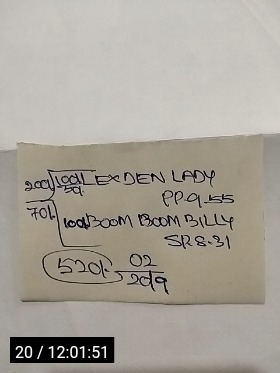 200/- 100/- LEXDEN LADY
50/-
PP. 9.55
70/-
100/- BOOM BOOM BILLY
SR 8.31
520/- 02
2019
20 / 12:01:51